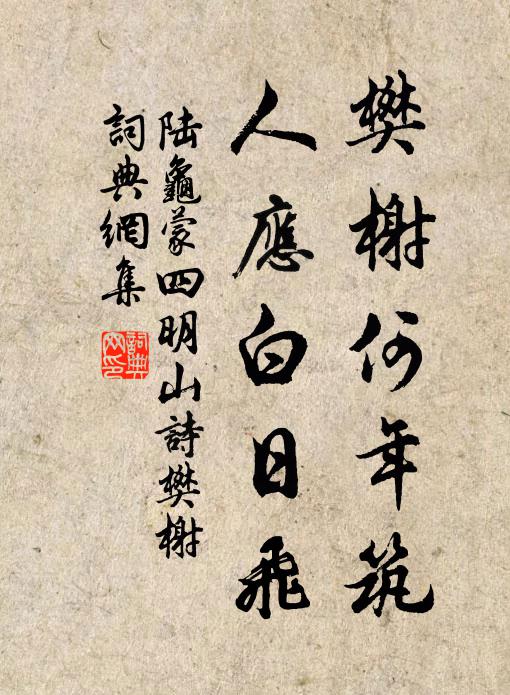 樊榭何年筑
人應白日飛
陆龜蒙四明山詩樊榭
詞典網集
詞典网印